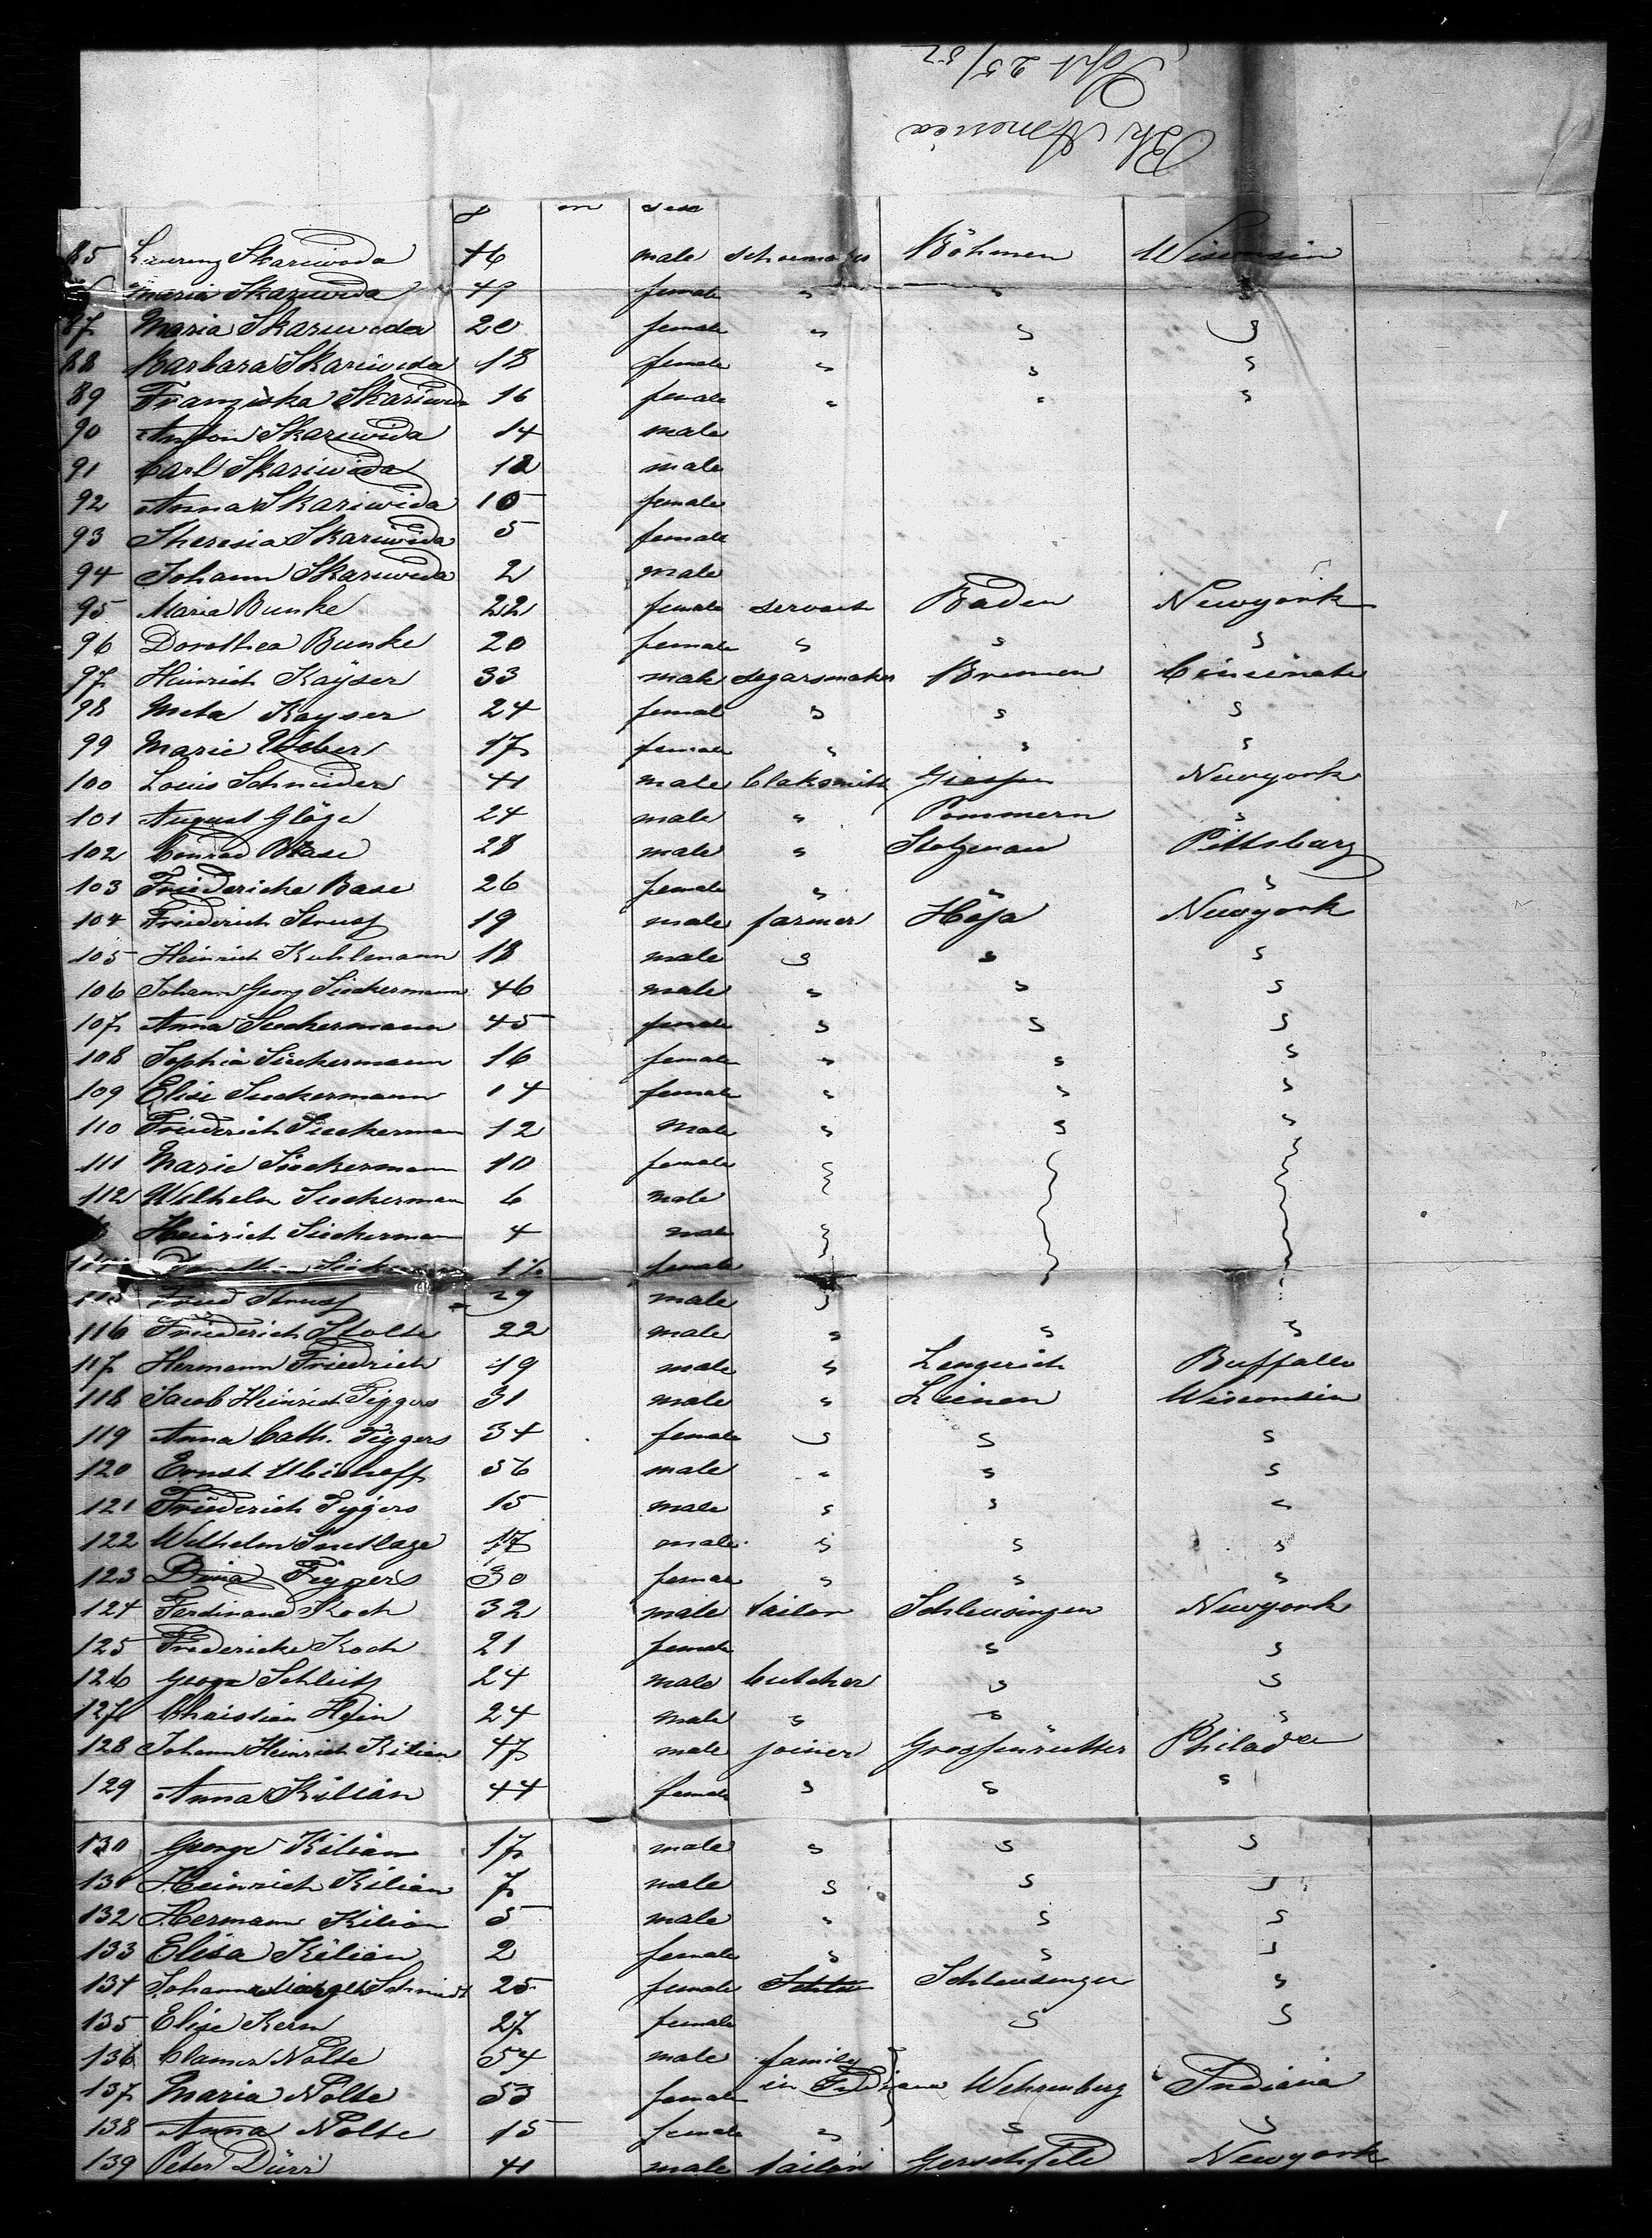 Bk America
Sept 25/52
sex
85 Laurenz Skariwoda 46 male schoemaker Böhmen Wisconsin
Maria Skariwida 49 female " "
87 Maria Skariwida 20 female " " "
88 Barbara Skariwida 18 female " " "
89 Franziska Skariwida 16 female " " "
90 Anton Skariwida 14 male
91 Carl Skariwida 12 male
92 Anna Skariwida 10 female
93 Theresia Skariwida 5 female
94 Johann Skariwida 2 male
95 Maria Bunke 22 female servant Baden Newyork
96 Dorothea Bunke 20 female " " "
97 Heinrich Kayser 33 male segarsmaker Bremen Cincinati
98 Meta Kayser 24 femal " " "
99 Marie Weber 17 female " " "
100 Louis Schnieder 41 male blaksmith Giessen Newyork
101 August Gläge 24 male " Pommern "
102 Conrad Base 28 male " Stolzenau Pittsburg
103 Friedericke Base 26 female " " "
104 Friederich Struss 19 male farmer Höja Newyork
105 Heinrich Kuhlmann 18 male " " "
106 Johann Georg Sieckermann 46 male " " "
107 Anna Sieckermann 45 female " " "
108 Sophia Sieckermann 16 female " " "
109 Elise Sieckermann 14 female " " "
110 Friederich Sieckerman 12 Male " " "
111 Marie Sieckermann 10 female
112 Wilhelm Sieckerman 6 male
Heinrich Sieckerman 4 male
114 female
115 Fried Struss 29 male "
116 Friederich Stolte 22 male " " "
117 Hermann Friedrich 19 male " Lengerich Buffallo
118 Jacob Heinrich Tiggers 31 male " Lienen Wisconsin
119 Anna Cath. Tiggers 34 female " " "
120 Ernst Ubishoff 36 male " " "
121 Friederich Tiggers 15 male " " "
122 Wilhelm 17 male " " "
123 Dina Tiggers 30 female " " "
124 Ferdinand Koch 32 male tailor Schleusingen Newyork
125 Friedericke Koch 21 female " "
126 George Schleitz 24 male butcher " "
127 Christian Hein 24 male " " "
128 Johann Heinrich Kilian 47 male joiner Grossenritter Philad
129 Anna Kilian 44 female " " "
130 George Kilian 17 male " " "
131 Heinrich Kilian 7 male " " "
132 Hermann Kilian 5 male " " "
133 Elisa Kilian 2 female " " "
134 Johanna Schmidt 25 female Schleusinger "
135 Elise Kern 27 female " "
136 Clamer Nolte 54 male family
137 Maria Nolte 53 female in Indiana Wehrenberg Indiana
138 Anna Nolte 15 female " " "
139 Peter Dürr 41 male tailor Gerschfeld Newyork